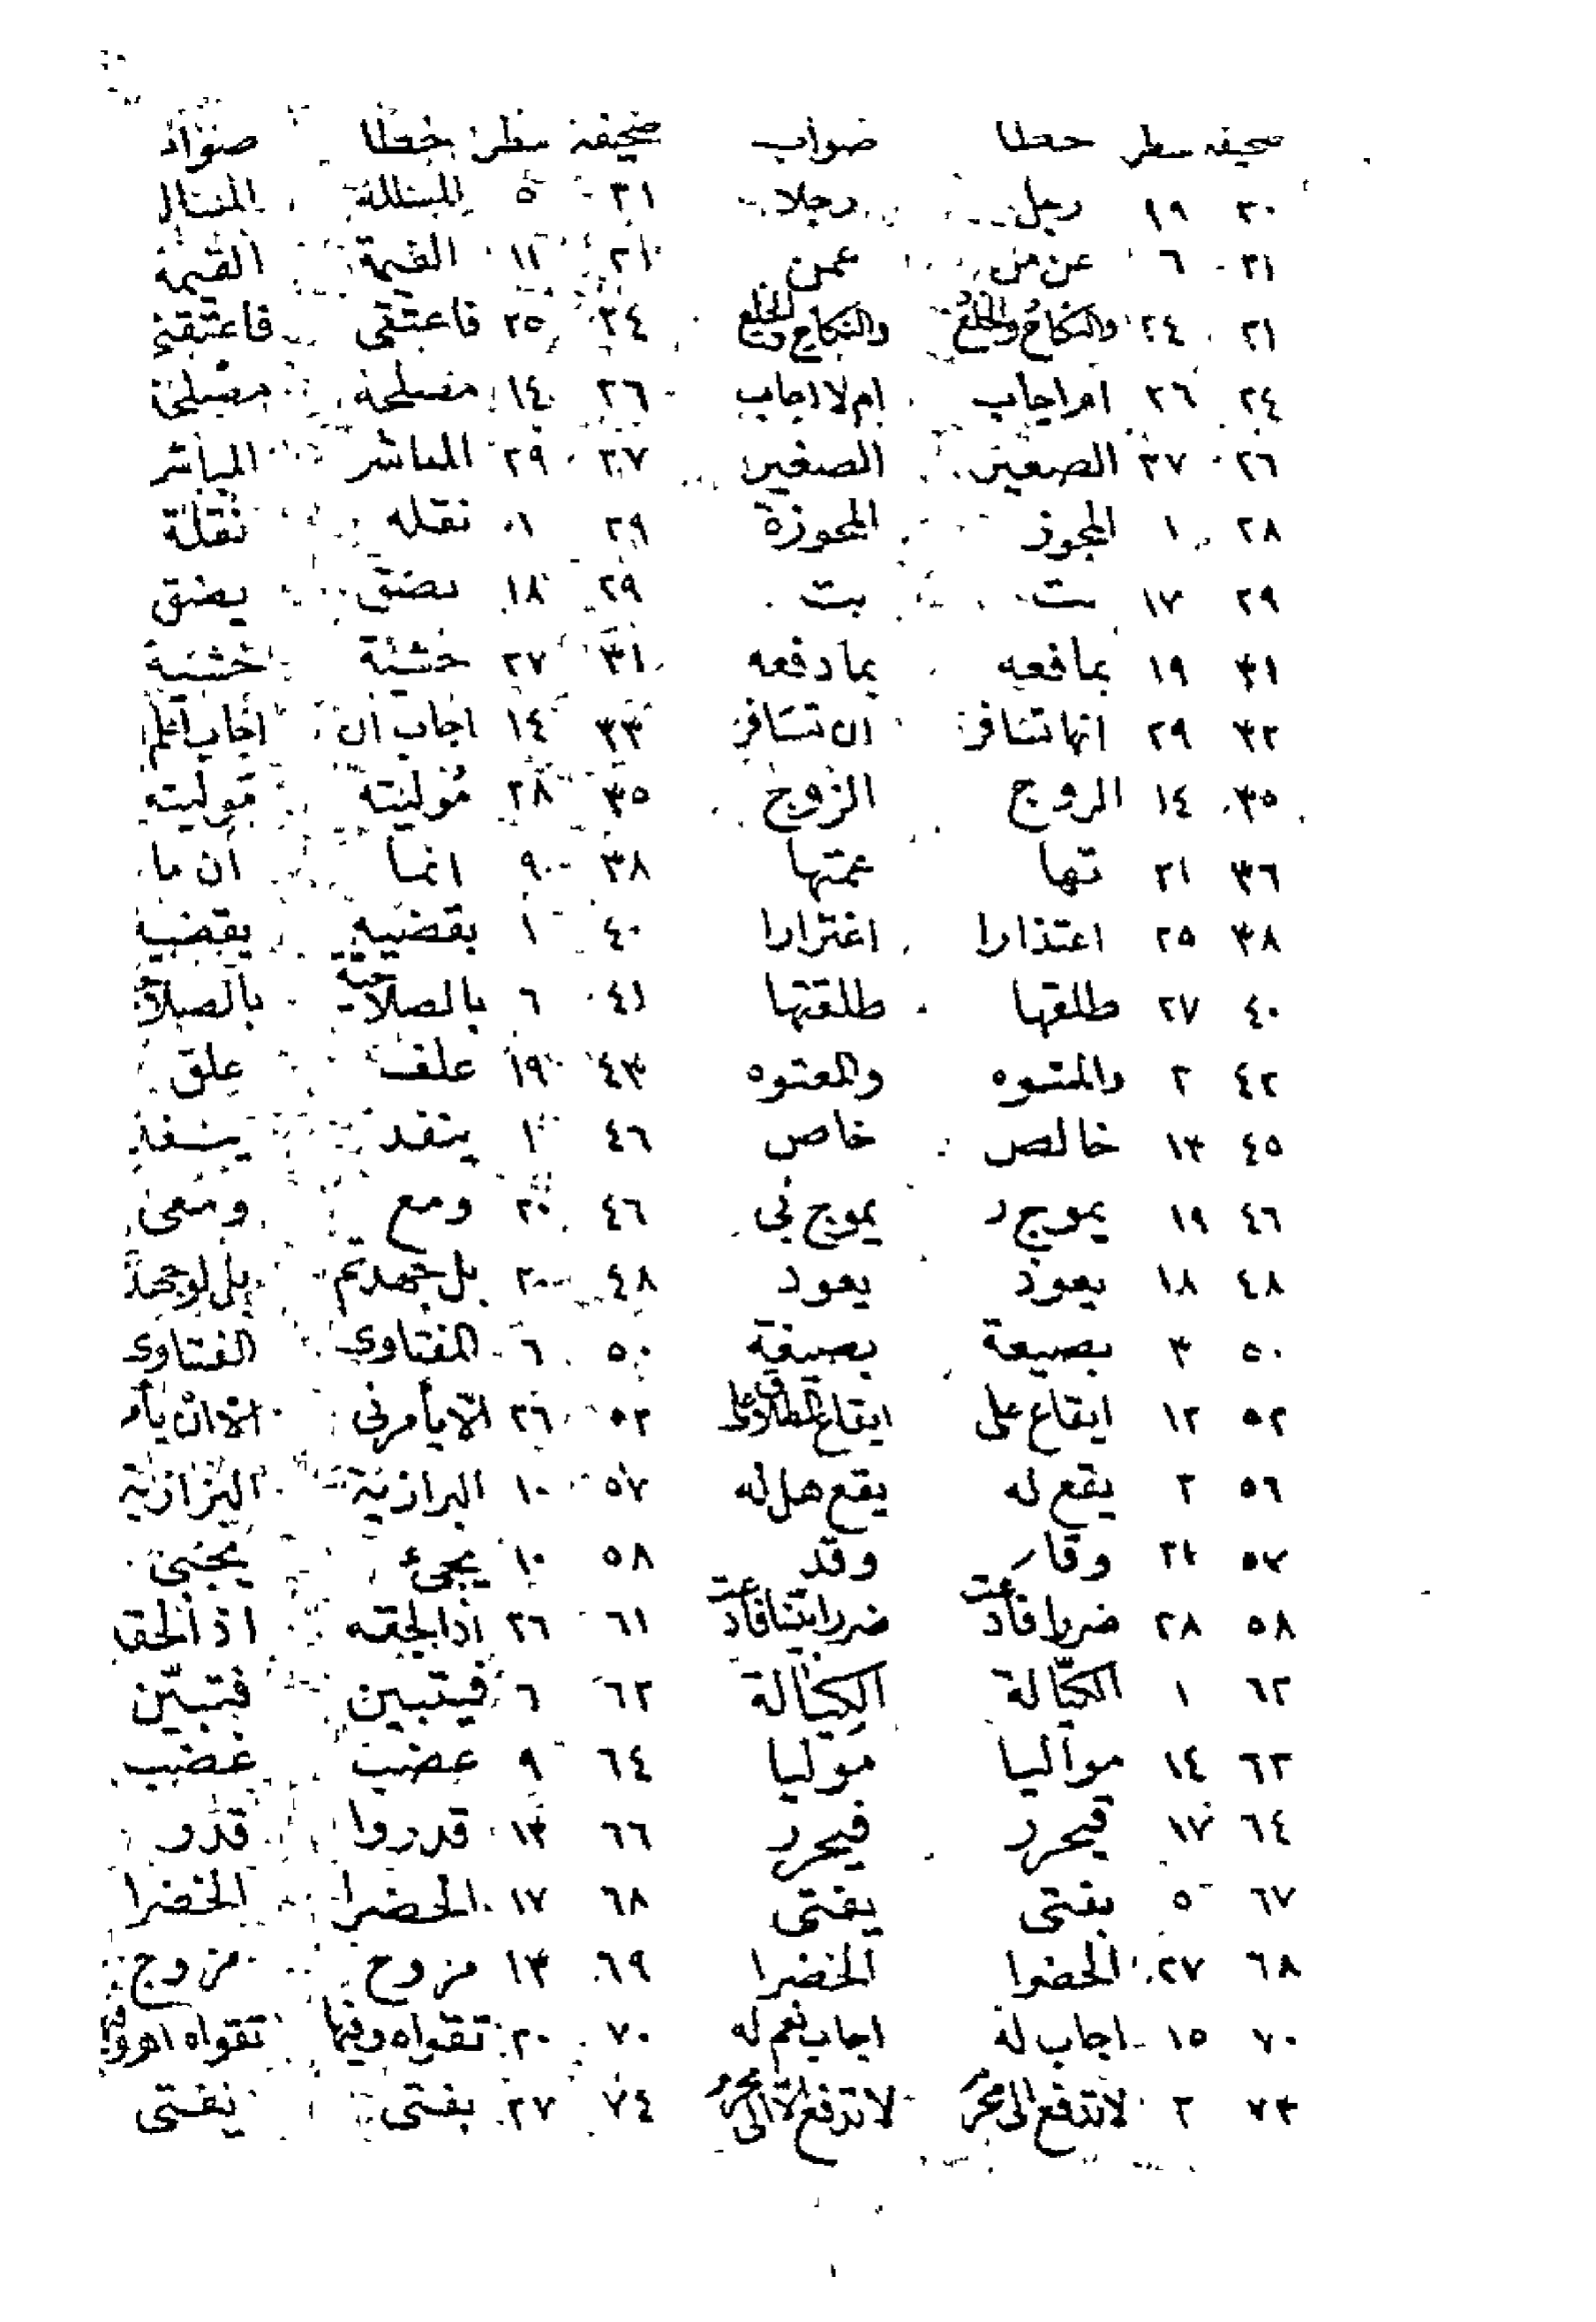 صحيفه سطر خطا صواب صحيفة سطر خطا صواب
٢٠ ١٩ رجل رجلا ٢١ ٥ للمسئلة
٢١ ٦ عن من عمن ٢١ ١٢ القيمة القيمة
٢١ ٢٤ والنكاح والخلع والنكاح والخلع ٢٤ ٢٥ فاعتقى فاعتقنى
٢٤ ٢٦ ام اجاب ام لا اجاب ٢٦ ١٤ مصلحة
٢٦ ٢٧ الصعير الصغير ٢٧ ٢٩ المباشر المباشر
٢٨ ١ المجوز المحوزة ٢٩ نقله نقلة
٢٩ ١٧ بت ٢٩ ١٨
٣١ ١٩ بمافعه بمادفعه ٣١ ٢٧ خشية
٣٢ ٢٩ انها تسافر ان تسافر ٣٣ ١٤ اجاب ان اجاب اعلم
٣٥ ١٤ الروج الزوج ٣٥ ٢٨ موليته موليته
٣٦ ٢١ تها عمتها ٣٨ ٩ انما أن ما
٣٨ ٢٥ اعتذارا اغترارا ٤٠ ١ بقضيه
٤٠ ٢٧ طلقها طلقتها ٤١ ٦ بالصلاحية
٤٢ ٢ والمتوه والمعتوه ٤٣ ١٩ علف علق
٤٥ ١٣ خالص خاص ٤٦ ١ ينفد
٤٦ ١٩ يموج ر يموج فى ٤٦ ٢٠ ومع ومعنى
٤٨ ١٨ يعوذ يعود ٤٨ ٢٠ بل جهدتم
٥٠ ٣ بصيعة بصيغة ٥٠ ٦ المفتاوى الفتاوى
٥٢ ١٢ ايقاع على ايقاع الطلاق على ٥٢ ٢٦ الا يأمرنى الا ان يأمر
٥٦ ٢ يقع له يقع هل له ٥٧ ١٠ البرازية البزازية
٥٧ ٢١ وقا وقد ٥٨ ١٠ يجئ
٥٨ ٢٨ ضررا فادعت ٦١ ٢٦ اذا لحقه اذ الحق
٦٢ ١ الكيالة ٦٢ ٦ فيتبين فتبين
٦٣ ١٤ مواليا موليا ٦٤ ٩ عضب غضب
٦٤ ١٧ قيحرر فيحرر ٦٦ ١٣ قدروا
٦٧ ٥ بفتى يفتى ٦٨ ١٧ الحضرا الخضرا
٦٨ ٢٧ الحضوا الخضرا ٦٩ ١٣ مزوح مزوج
٧٠ ١٥ اجاب له اجاب نعم له ٧٠ ٢٠ تقواه وفيها تقواه اهـ وفيها
٧٣ ٢ لا تدفع الى محرم لا تدفع الا الى محرم ٧٤ ٢٧ بفتى نفتى